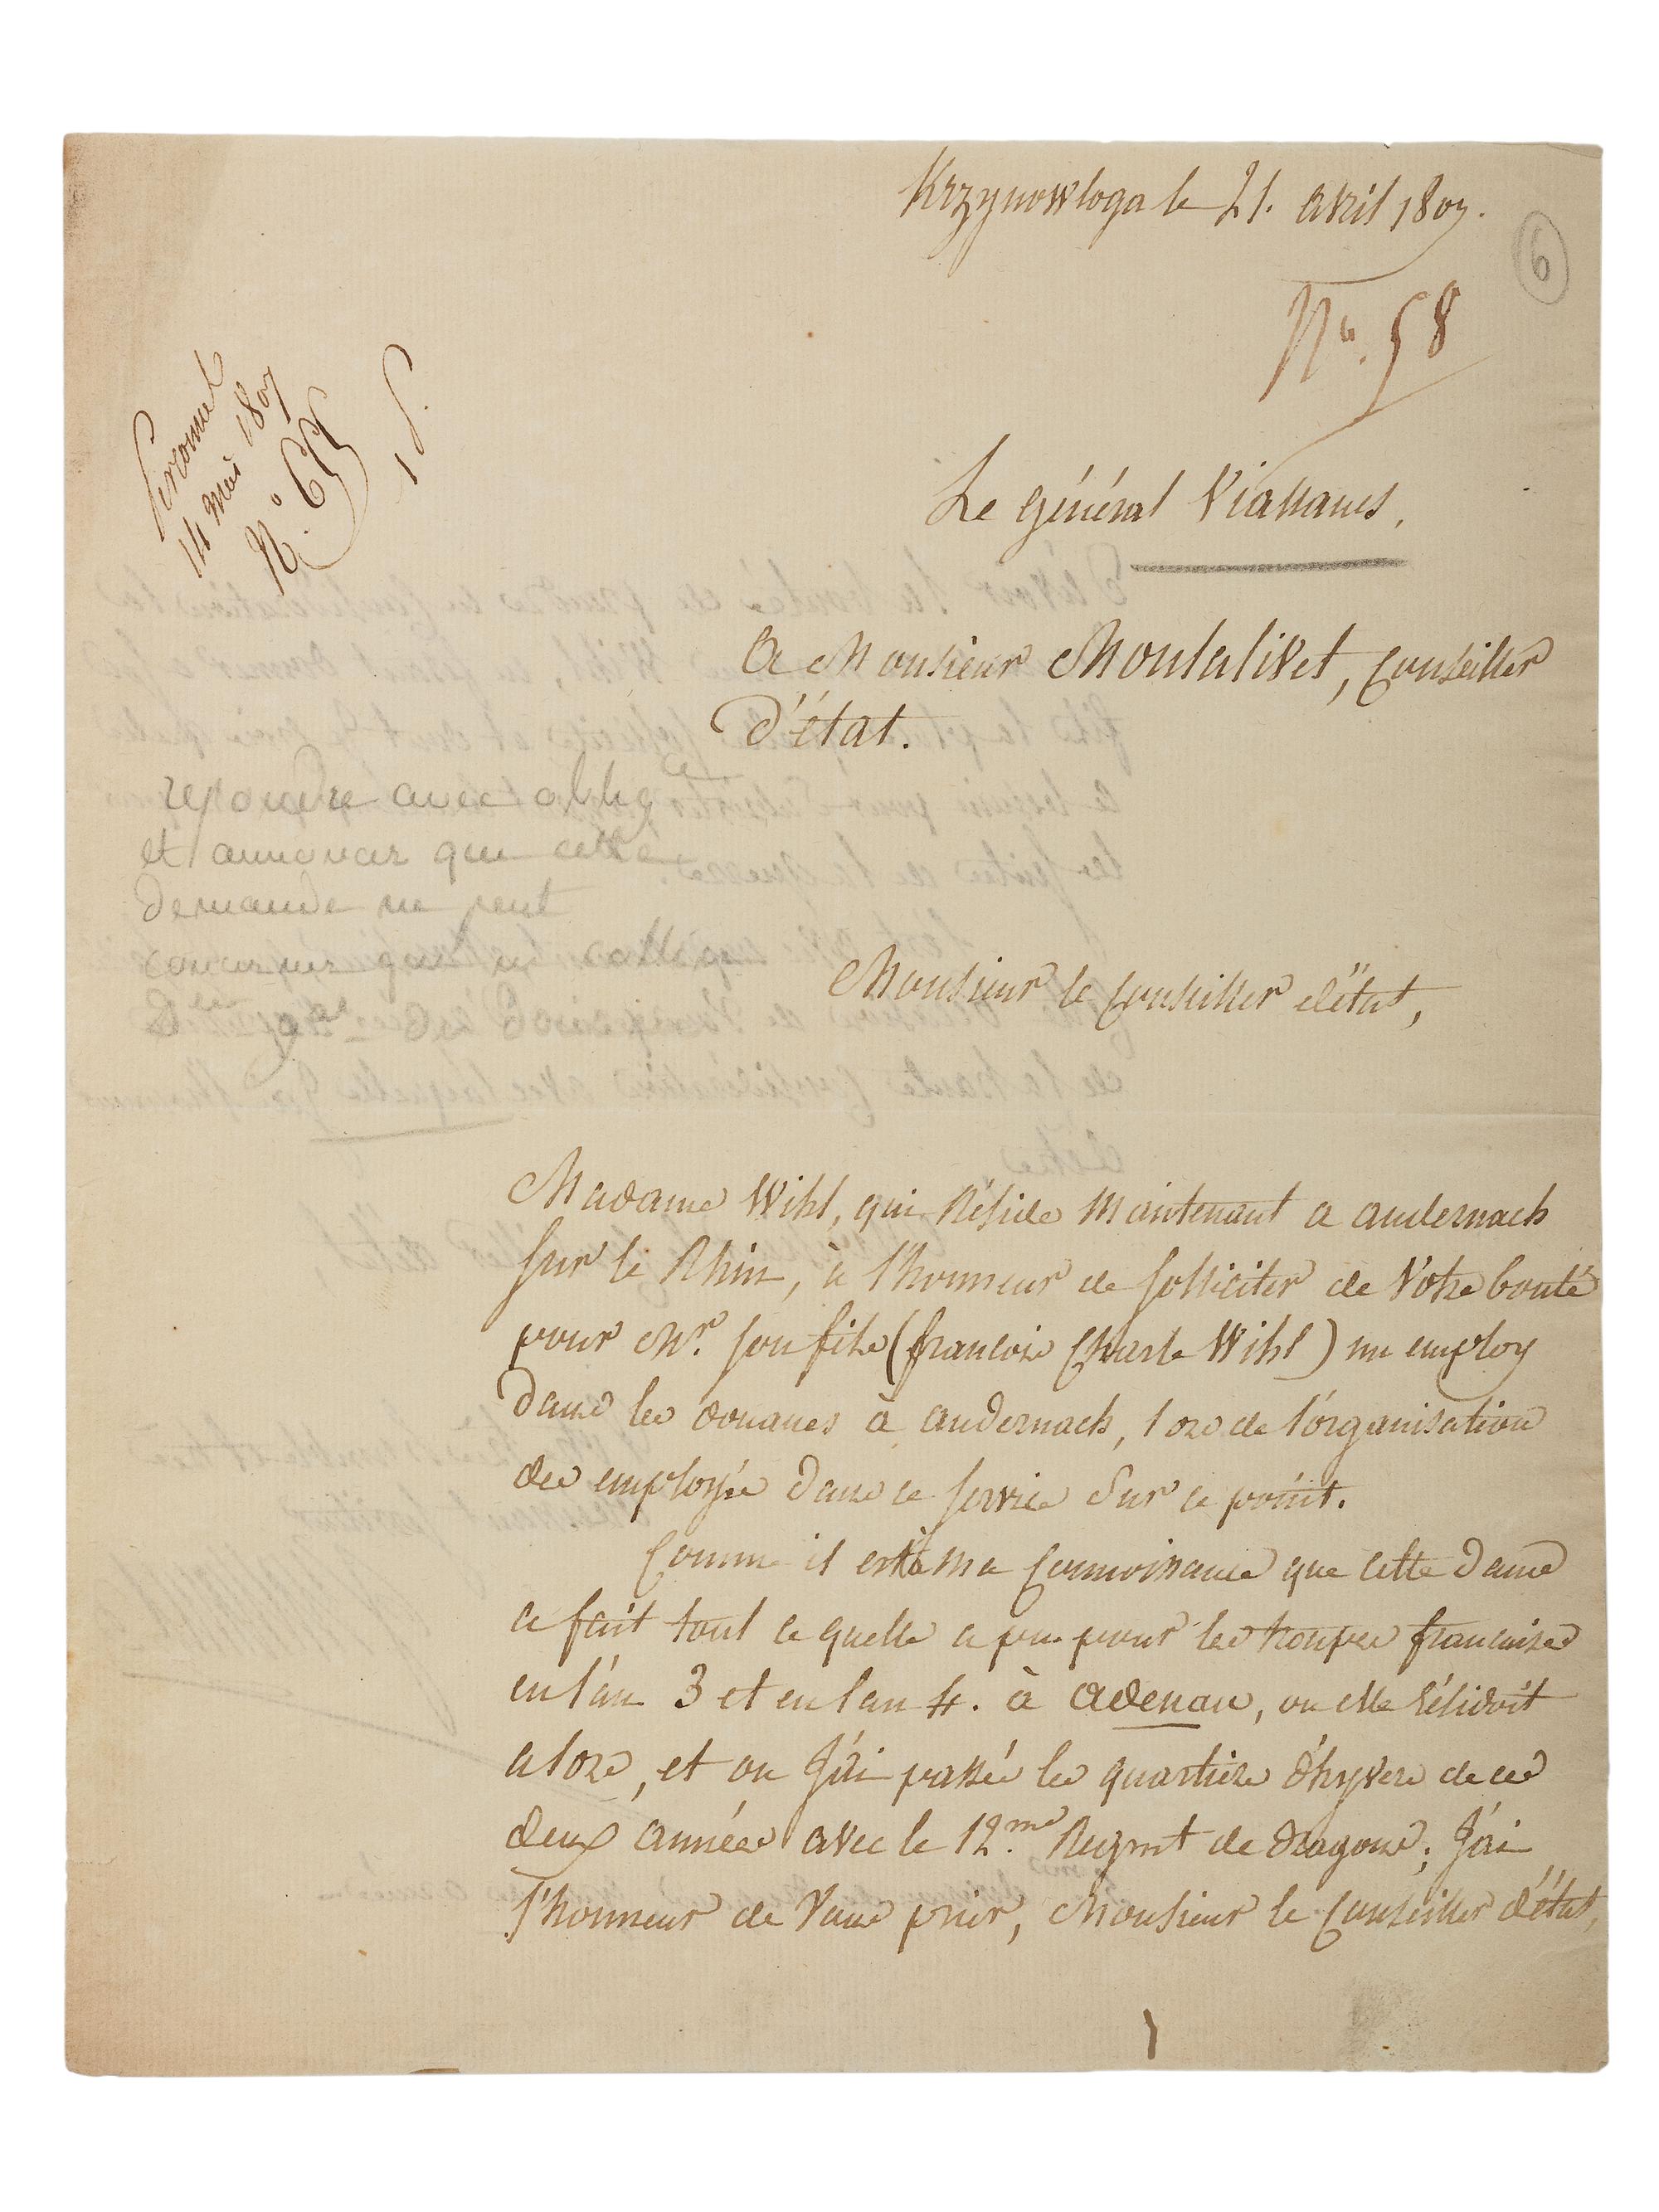 Krzynowloga le 21. avril 1807.
6
N°. 58
Personnel
14 Mai 1807
N.° 65
Le général Vialannes,
A Monsieur Montalivet, Conseiller
d'état.
repondre avec oblig.ce
et annoncer que cette
demande ne peut
concerner que un collègue
D.eur g.al des
Monsieur le Conseiller d'état,
Madame Wihl, qui Réside Maintenant a andernach
sur le Rhin, à l'honneur de solliciter de Votre bonté
pour Mr. son fils (francois Charle Wihl) un employ
dans les douanes à andernach, lors de l'organisation
des employés dans ce service sur ce point.
Comme il est à ma Connoissance que cette dame
a fait tout ce quelle a pu pour les troupes francaises
en l'an 3 et en l'an 4. à Adenau, ou elle Résidoit
alors, et ou J'ai passé les quartiers d'hyvers de ces
deux années avec le 12.me Regmt de dragons; J'ai
l'honneur de Vous prier, Monsieur le Conseiller d'état,